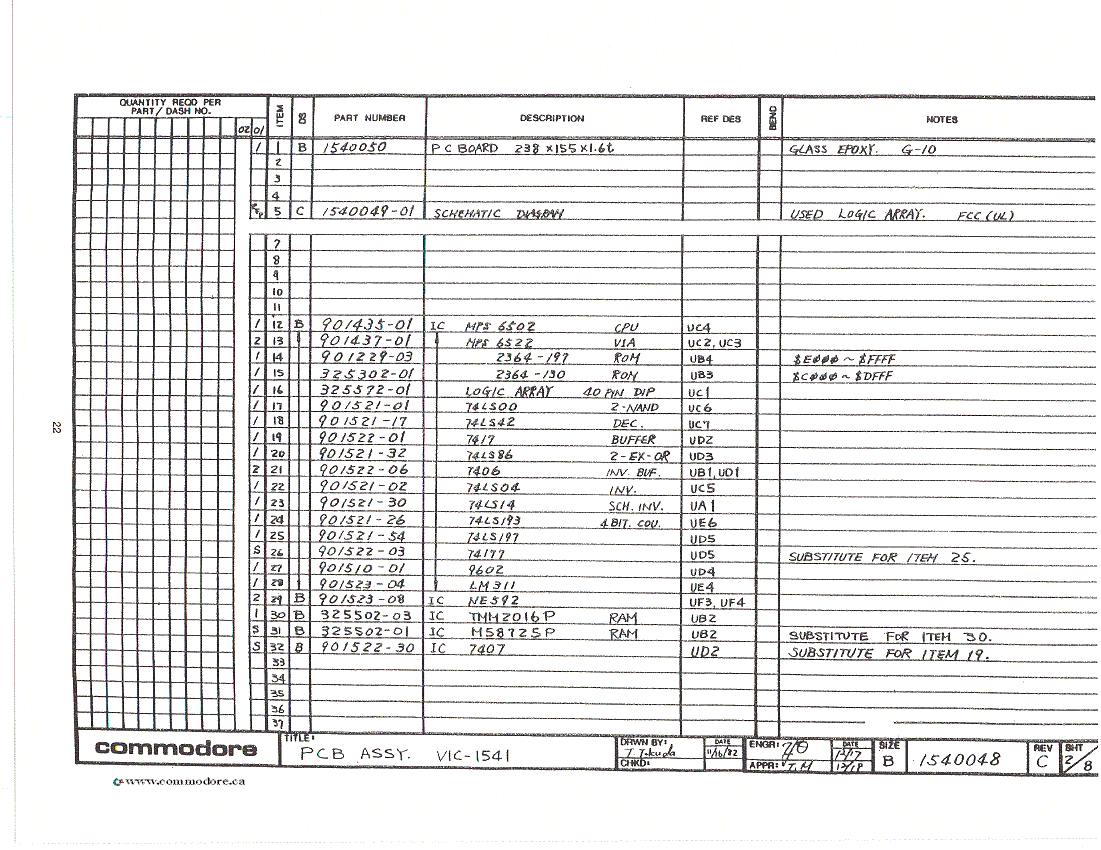 QUANTITY REQD PER PART/ DASH NO. ITEM DS PART NUMBER DESCRIPTION REF DES BEND NOTES
02 01
1 1 B 1540050 PC BOARD 238 ×155×1.6t GLASS EPOXY. G-10
2
3
4
5 C 1540049-01 SCHEMATIC DIAGRAM USED LOGIC ARRAY. FCC (UL)
7
8
9
10
11
1 12 B 901435-01 IC MPS 6502 CPU UC4
2 13 901437-01 MPS 6522 VIA UC2, UC3
1 14 901229-03 2364-197 ROM UB4 $EØØØ ~ $FFFF
1 15 325302-01 2364-130 ROM UB3 $CØØØ ~ $DFFF
1 16 325572-01 LOGIC ARRAY 40 PIN DIP UC1
1 17 901521-01 74LS00 2-NAND UC6
1 18 901521-17 74LS42 DEC. UC7
1 19 901522-01 7417 BUFFER UD2
1 20 901521-32 74LS86 2-EX-OR UD3
2 21 901522-06 7406 INV. BUF. UB1, UD1
1 22 901521-02 74LS04 INV. UC5
1 23 901521-30 74LS14 SCH. INV. UA1
1 24 901521-26 74LS193 4BIT. COU. UE6
1 25 901521-54 74LS197 UD5
S 26 901522-03 74177 UD5 SUBSTITUTE FOR ITEM 25.
1 27 901510-01 9602 UD4
1 28 901523-04 LM311 UE4
2 29 B 901523-08 IC NE592 UF3, UF4
1 30 B 325502-03 IC TMM2016P RAM UB2
S 31 B 325502-01 IC M58725P RAM UB2 SUBSTITUTE FOR ITEM 30.
S 32 B 901522-30 IC 7407 UD2 SUBSTITUTE FOR ITEM 19.
33
34
35
36
37
22
commodore TITLE: PCB ASSY. VIC-1541 DRWN BY: T. Tokuda DATE 11/16/82 CHKD: ENGR: DATE 12/17 APPR: T.M 12/18 SIZE B 1540048 REV C SHT 2/8
www.commodore.ca